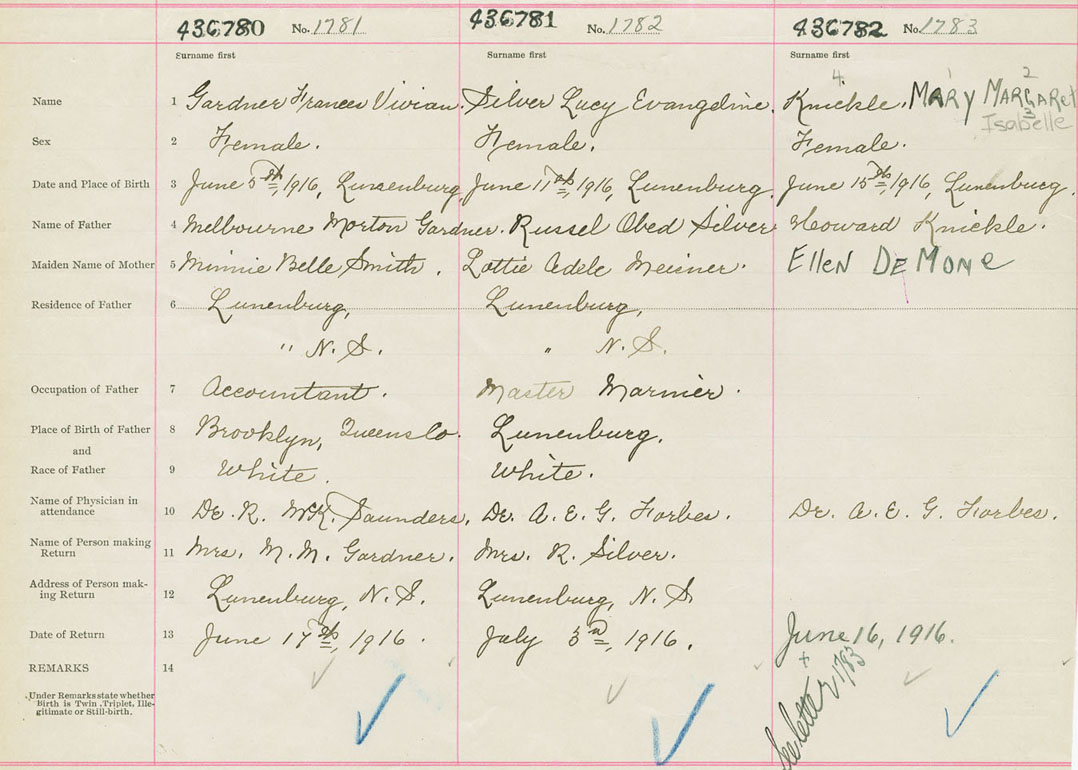 436780 No. 1781 436781 No. 1782 436782 No. 1783
Surname first Surname first Surname first
4. 1 2
Name 1 Gardner Frances Vivian. Silver Lucy Evangeline. Knickle. MARY MARGARet
3
Isabelle
Sex 2 Female. Female. Female.
Date and Place of Birth 3 June 5th, 1916, Lunenburg, June 11th, 1916, Lunenburg. June 15th, 1916, Lunenburg.
Name of Father 4 Melbourne Morton Gardner. Russel Obed Silver Howard Knickle.
Maiden Name of Mother 5 Minnie Belle Smith. Lottie Adele Meisner. EllEN DEMONe
Residence of Father 6 Lunenburg, Lunenburg,
" N. S. " N. S.
Occupation of Father 7 Accountant. Master Marnier.
Place of Birth of Father 8 Brooklyn, Queens Co. Lunenburg.
and
Race of Father 9 White. White.
Name of Physician in
attendance 10 Dr. R. McK. Saunders, Dr. A. E. G. Forbes. Dr. A. E. G. Forbes.
Name of Person making
Return 11 Mrs. M. M. Gardner. Mrs. R. Silver.
Address of Person mak-
ing Return 12 Lunenburg, N. S. Lunenburg, N. S.
Date of Return 13 June 17th, 1916. July 3rd, 1916. June 16, 1916.
REMARKS 14
Under Remarks state whether
Birth is Twin, Triplet, Ille-
gitimate or Still-birth.
See letter 1783